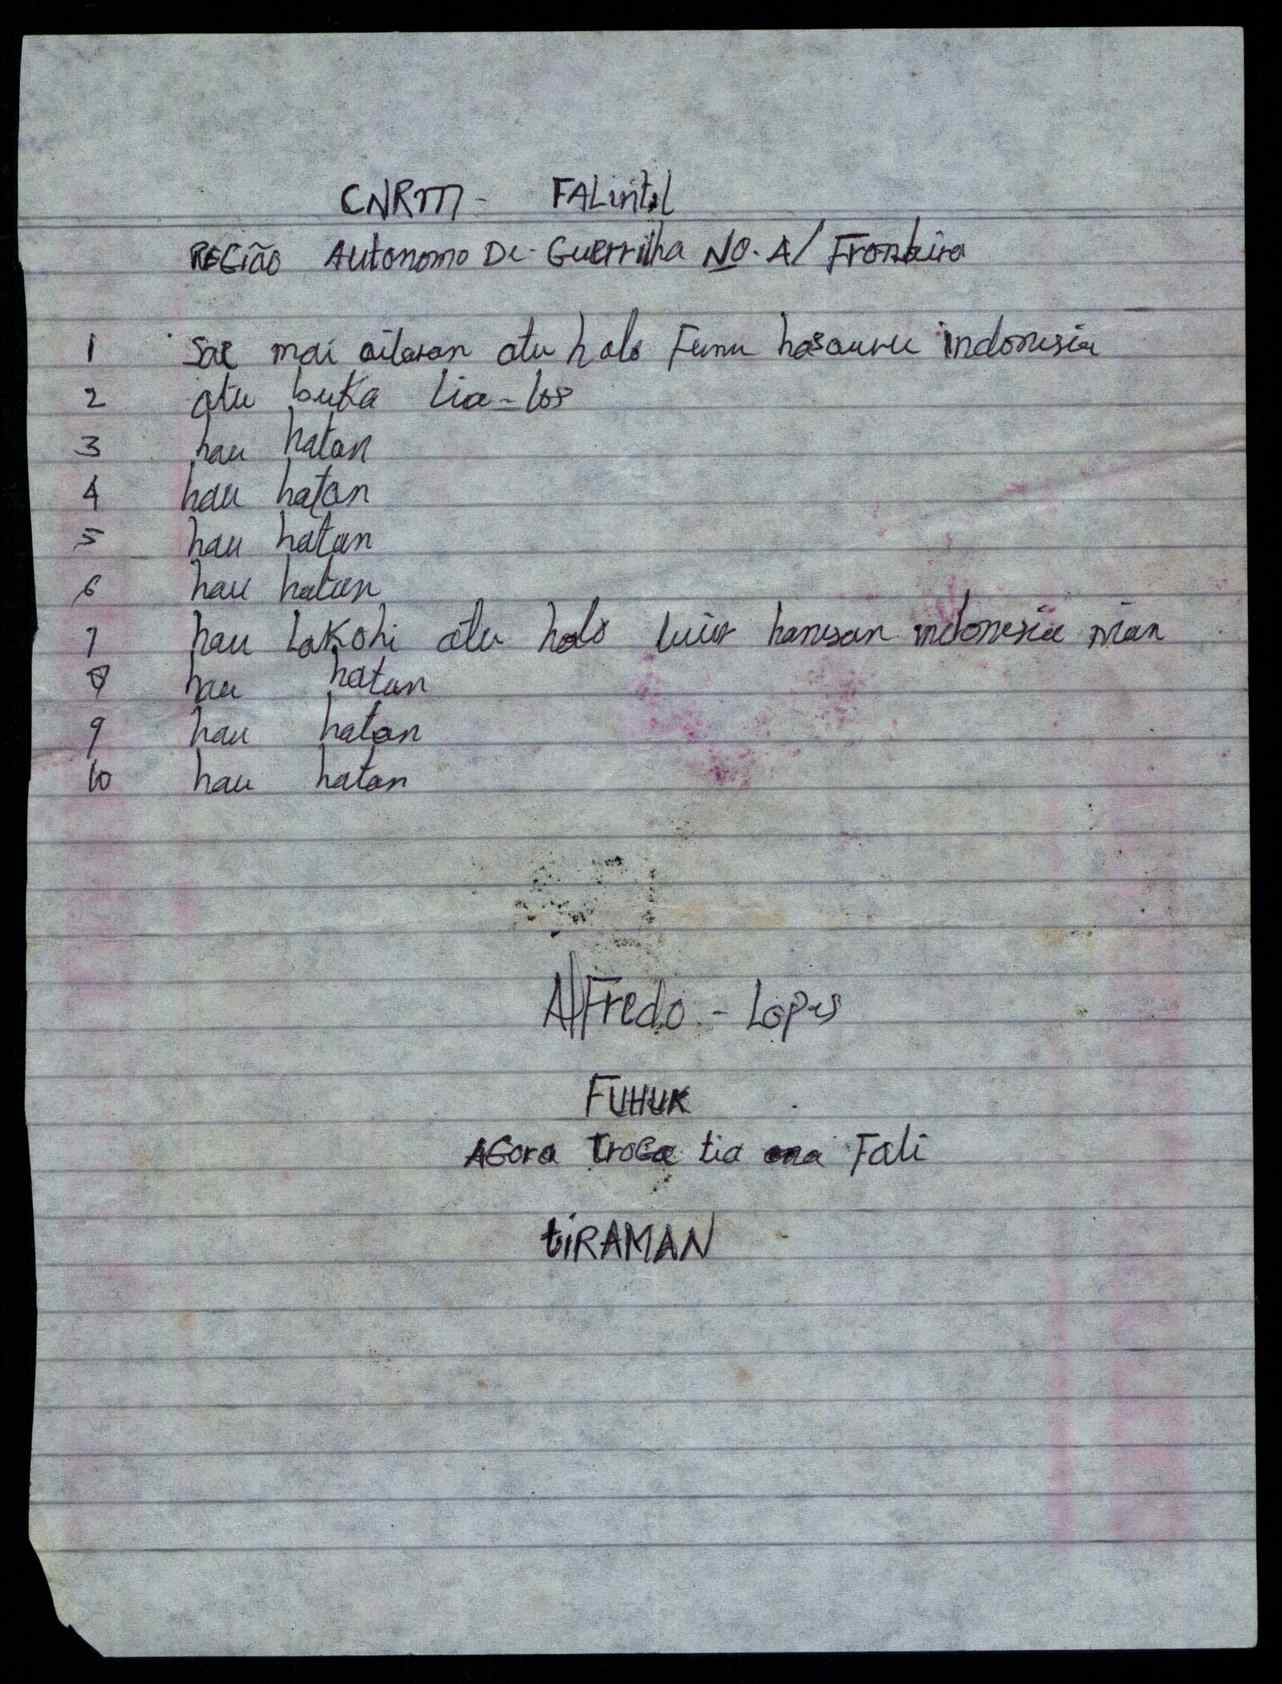 CNRM - FALintil
REGião Autonomo De- Guerrilha No. A/ Fronteira
1 Sae mai ailaran atu halo Funu hasouru indonesia
2 atu buka Lia-los
3 hau hatan
4 hau hatan
5 hau hatan
6 hau hatan
7 hau Lakohi atu halo hanesan indonesia nian
8 hau hatan
9 hau hatan
10 hau hatan
AlFredo - Lopes
FUHUK
AGora troca tia ona Fali
tiRAMAN